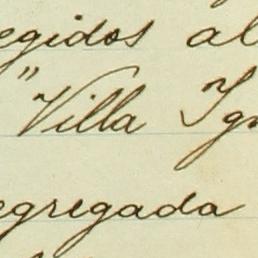 egidos al
"Villa Ign
egregada